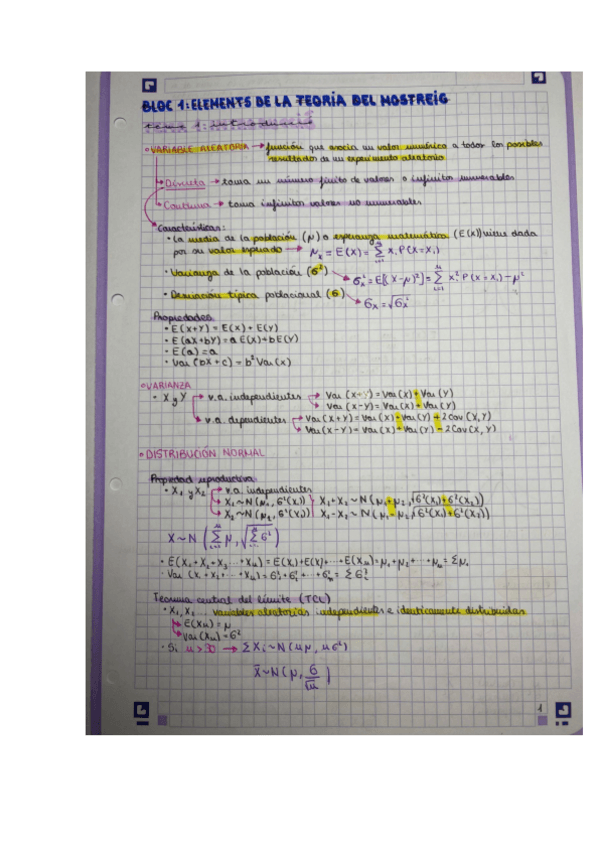 BLOC 1: ELEMENTS DE LA TEORIA DEL MOSTREIG
tema 1: introducció
• VARIABLE ALEATORIA → función que asocia un valor numérico a todos los posibles
resultados de un experimento aleatorio
→ Discreta → toma un número finito de valores o infinitos numerables
→ Continua → toma infinitos valores no numerables
Características:
• La media de la población (μ) o esperanza matemática (E(X)) viene dada
por su valor esperado → μx = E(X) = Σ xi P(X = xi)
• Varianza de la población (σ²) → σx² = E[(X-μ)²] = Σ xi² P(X = xi) - μ²
• Desviación típica poblacional (σ) → σx = √σx²
Propiedades:
• E(X+Y) = E(X) + E(Y)
• E(aX+bY) = a E(X) + b E(Y)
• E(a) = a
• Var(bX + c) = b² Var(X)
• VARIANZA
• X y Y → v.a. independientes → Var(X+Y) = Var(X) + Var(Y)
→ Var(X-Y) = Var(X) + Var(Y)
→ v.a. dependientes → Var(X+Y) = Var(X) + Var(Y) + 2Cov(X,Y)
→ Var(X-Y) = Var(X) + Var(Y) - 2Cov(X,Y)
• DISTRIBUCIÓN NORMAL
Propiedad reproductiva:
• X₁ y X₂ → v.a. independientes
→ X₁ ~ N(μ₁, σ²(X₁)) X₁+X₂ ~ N(μ₁+μ₂, √σ²(X₁)+σ²(X₂))
→ X₂ ~ N(μ₂, σ²(X₂)) X₁-X₂ ~ N(μ₁-μ₂, √σ²(X₁)+σ²(X₂))
X ~ N (Σ μ, √Σ σ²)
• E(X₁+X₂+X₃ ... + Xn) = E(X₁)+E(X)+...+E(Xn) = μ₁+μ₂+...+μn = Σμi
• Var (X₁+X₂+...+Xn) = σ₁²+σ₂²+...+σn² = Σσi²
Teorema central del límite (TCL)
• X₁, X₂ ... variables aleatorias independientes e idénticamente distribuidas
→ E(Xn) = μ
→ Var(Xn) = σ²
• Si n > 30 → ΣXi ~ N(nμ, nσ²)
X̄ ~ N(μ, σ/√n)
1